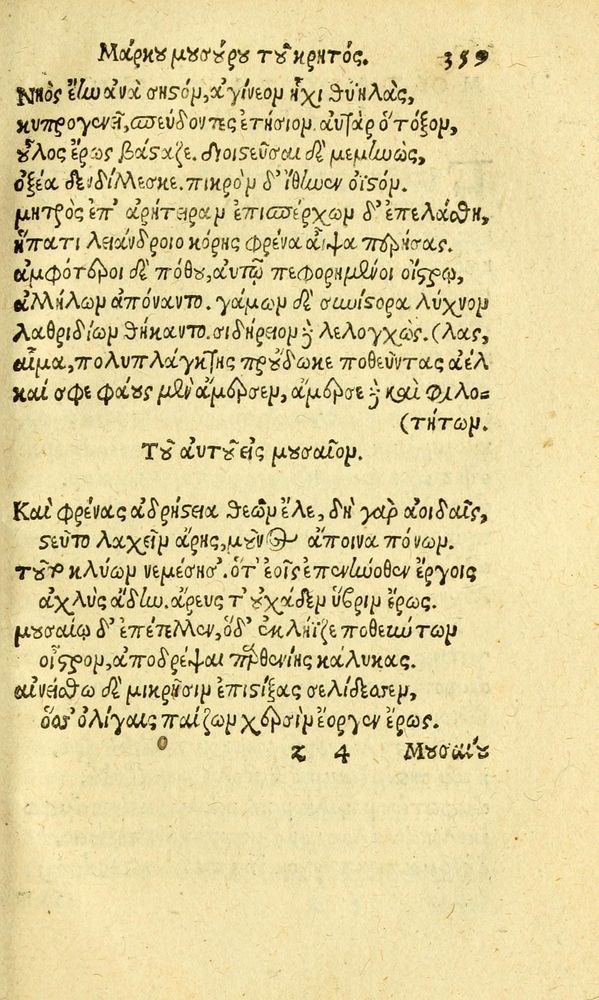 Μάρκου μουσούρου τοῦ κρητός. 359
Νηὸς ἔην ἀνὰ σηστόν, ἀγίνεον ᾗχι θυηλὰς,
κυπρογενεῖ, σπεύδοντες ἐτήσιον. αὐτὰρ ὁ τόξον,
οὖλος ἔρως βάσταζε. διοϊστεῦσαι δὲ μεμαὼς,
ὀξέα δενδίλλεσκε. πικρὸν δ' ἴθυνεν ὀϊστόν.
μητρὸς ἐπ' ἀρήτειραν ἐπισπέρχων δ' ἐπελάσθη,
ἥπατι λειάνδροιο κόρης φρένα αἶψα πορήσας.
ἀμφότεροι δὲ πόθου, αὐτῷ πεφορημένοι οἴστρῳ,
ἀλλήλων ἀπόναντο. γάμων δὲ συνίστορα λύχνον
λαθριδίων θήκαντο. σιδήρειον λελογχώς. (λας,
αἶμα, πολυπλάγκτης προύδωκε ποθεῦντας ἀέλ
καί σφε φάους μὲν ἄμερσεν, ἄμερσε καὶ φιλο=
(τήτων.
Τοῦ αὐτοῦ εἰς μουσαῖον.
Καὶ φρένας ἀδρήστεια θεῶν ἕλε, δὴ γὰρ ἀοιδαῖς,
στεῦτο λαχεῖν ἄρης, μοῦνος ἄποινα πόνων.
τοῦ κλύων νεμέσησ'. ὅτ' ἑοῖς ἐπενήνοθεν ἔργοις
ἀχλὺς ἄρεος τ' οὐχάδεν ὕβριν ἔρως.
μουσαίῳ δ' ἐπέτελλεν, ὁ δ' ἐκλήϊζε ποθεώτων
οἶστρον, ἀποδρέψαι παρθενίης κάλυκας.
αἰνείσθω δὲ μικρῇσιν ἐπιστίξας σελίδεσσιν,
ὅσσ' ὀλίγαις παίζων χερσὶν ἔοργεν ἔρως.
z 4 Μουσαίου